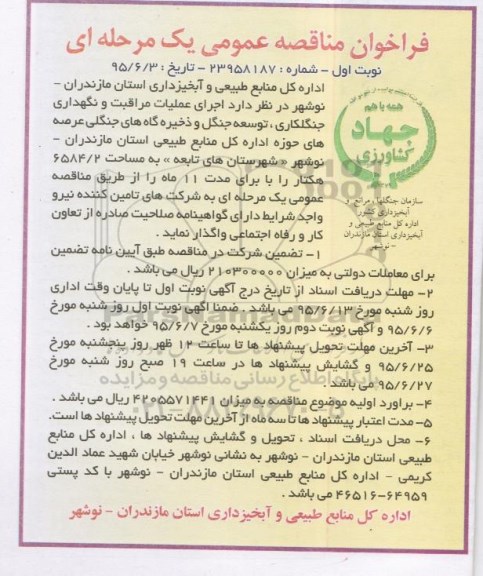 فراخوان مناقصه عمومی یک مرحله ای
نوبت اول – شماره : ۲۳۹۵۸۱۸۷ – تاریخ : ۹۵/۶/۳
همه با هم
جهاد
کشاورزی
سازمان جنگلها و مراتع و
آبخیزداری کشور
اداره کل منابع طبیعی و
آبخیزداری استان مازندران
– نوشهر
اداره کل منابع طبیعی و آبخیزداری استان مازندران –
نوشهر در نظر دارد اجرای عملیات مراقبت و نگهداری
جنگلکاری ، توسعه جنگل و ذخیره گاه های جنگلی عرصه
های حوزه اداره کل منابع طبیعی استان مازندران –
نوشهر « شهرستان های تابعه » به مساحت ۶۵۸۴/۲
هکتار را با برای مدت ۱۱ ماه را از طریق مناقصه
عمومی یک مرحله ای به شرکت های تامین کننده نیرو
واجد شرایط دارای گواهینامه صلاحیت صادره از تعاون
کار و رفاه اجتماعی واگذار نماید .
۱– تضمین شرکت در مناقصه طبق آیین نامه تضمین
برای معاملات دولتی به میزان ۲۱۰۳۰۰۰۰۰ ریال می باشد .
۲– مهلت دریافت اسناد از تاریخ درج آگهی نوبت اول تا پایان وقت اداری
روز شنبه مورخ ۹۵/۶/۱۳ می باشد . ضمنا آگهی نوبت اول روز شنبه مورخ
۹۵/۶/۶ و آگهی نوبت دوم روز یکشنبه مورخ ۹۵/۶/۷ خواهد بود .
۳– آخرین مهلت تحویل پیشنهاد ها تا ساعت ۱۲ ظهر روز پنجشنبه مورخ
۹۵/۶/۲۵ و گشایش پیشنهاد ها در ساعت ۱۹ صبح روز شنبه مورخ
۹۵/۶/۲۷ می باشد .
۴– براورد اولیه موضوع مناقصه به میزان ۴۲۰۵۵۷۱۴۴۱ ریال می باشد .
۵– مدت اعتبار پیشنهاد ها تا سه ماه از آخرین مهلت تحویل پیشنهاد ها است.
۶– محل دریافت اسناد ، تحویل و گشایش پیشنهاد ها ، اداره کل منابع
طبیعی استان مازندران – نوشهر به نشانی نوشهر خیابان شهید عماد الدین
کریمی – اداره کل منابع طبیعی استان مازندران – نوشهر با کد پستی
۴۶۵۱۶–۶۴۹۵۹ می باشد .
اداره کل منابع طبیعی و آبخیزداری استان مازندران – نوشهر